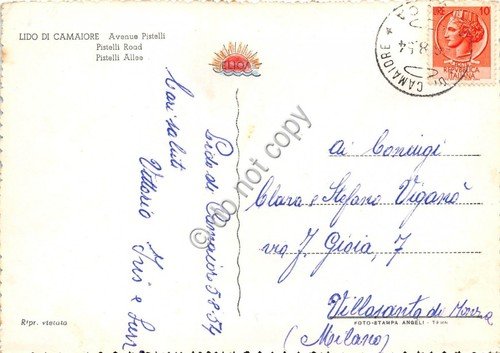 LIDO DI CAMAIORE Avenue Pistelli
Pistelli Road
Pistelli Allee
LIDO
CAMAIORE
8.54
LIRE 10
ITALIANA
Lido di Camaiore 5.8.54
Cari saluti
Vittorio Iris e
ai Coniugi
Clara e Stefano Viganò
via J. Gioia, 7
Villasanta di Monza
(Milano)
Ripr. vietata
FOTO-STAMPA ANGELI - Terni
do not copy